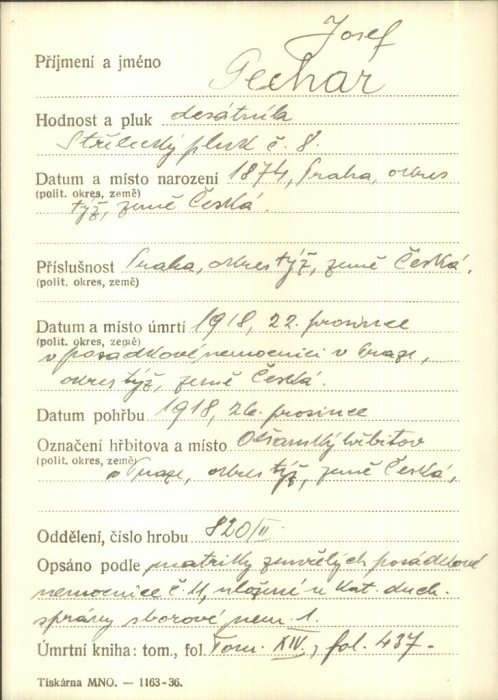 Josef
Příjmení a jméno Pechar
Hodnost a pluk desátník
Střelecký pluk č. 8.
Datum a místo narození 1874, Praha, okres
(polit. okres, země)
týž, země Česká.
Příslušnost Praha, okres týž, země Česká.
(polit. okres, země)
Datum a místo úmrtí 1918, 22. prosince
(polit. okres, země)
v posádkové nemocnici v Praze,
okres týž, země Česká.
Datum pohřbu 1918, 26. prosince
Označení hřbitova a místo Olšanský hřbitov
(polit. okres, země)
v Praze, okres týž, země Česká.
Oddělení, číslo hrobu 820/II.
Opsáno podle matriky zemřelých posádkové
nemocnice č. 11, uložené u kat. duch.
správy sborové nem. 1.
Úmrtní kniha: tom., fol. Tom. XIV., fol. 437.
Tiskárna MNO. — 1163-36.